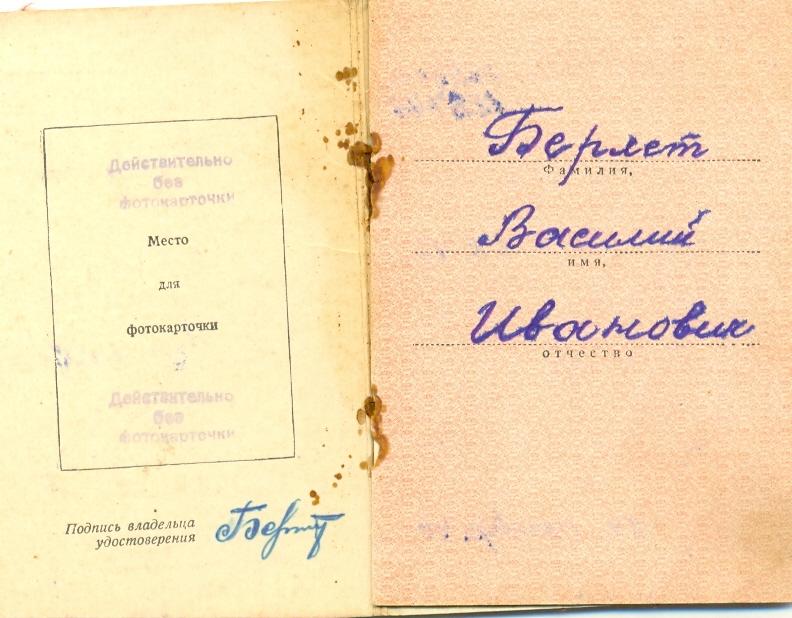 Действительно
без
фотокарточки
Место
для
фотокарточки
Действительно
без
фотокарточки
Подпись владельца
удостоверения
Берлет
Фамилия,
Василий
имя,
Иванович
отчество